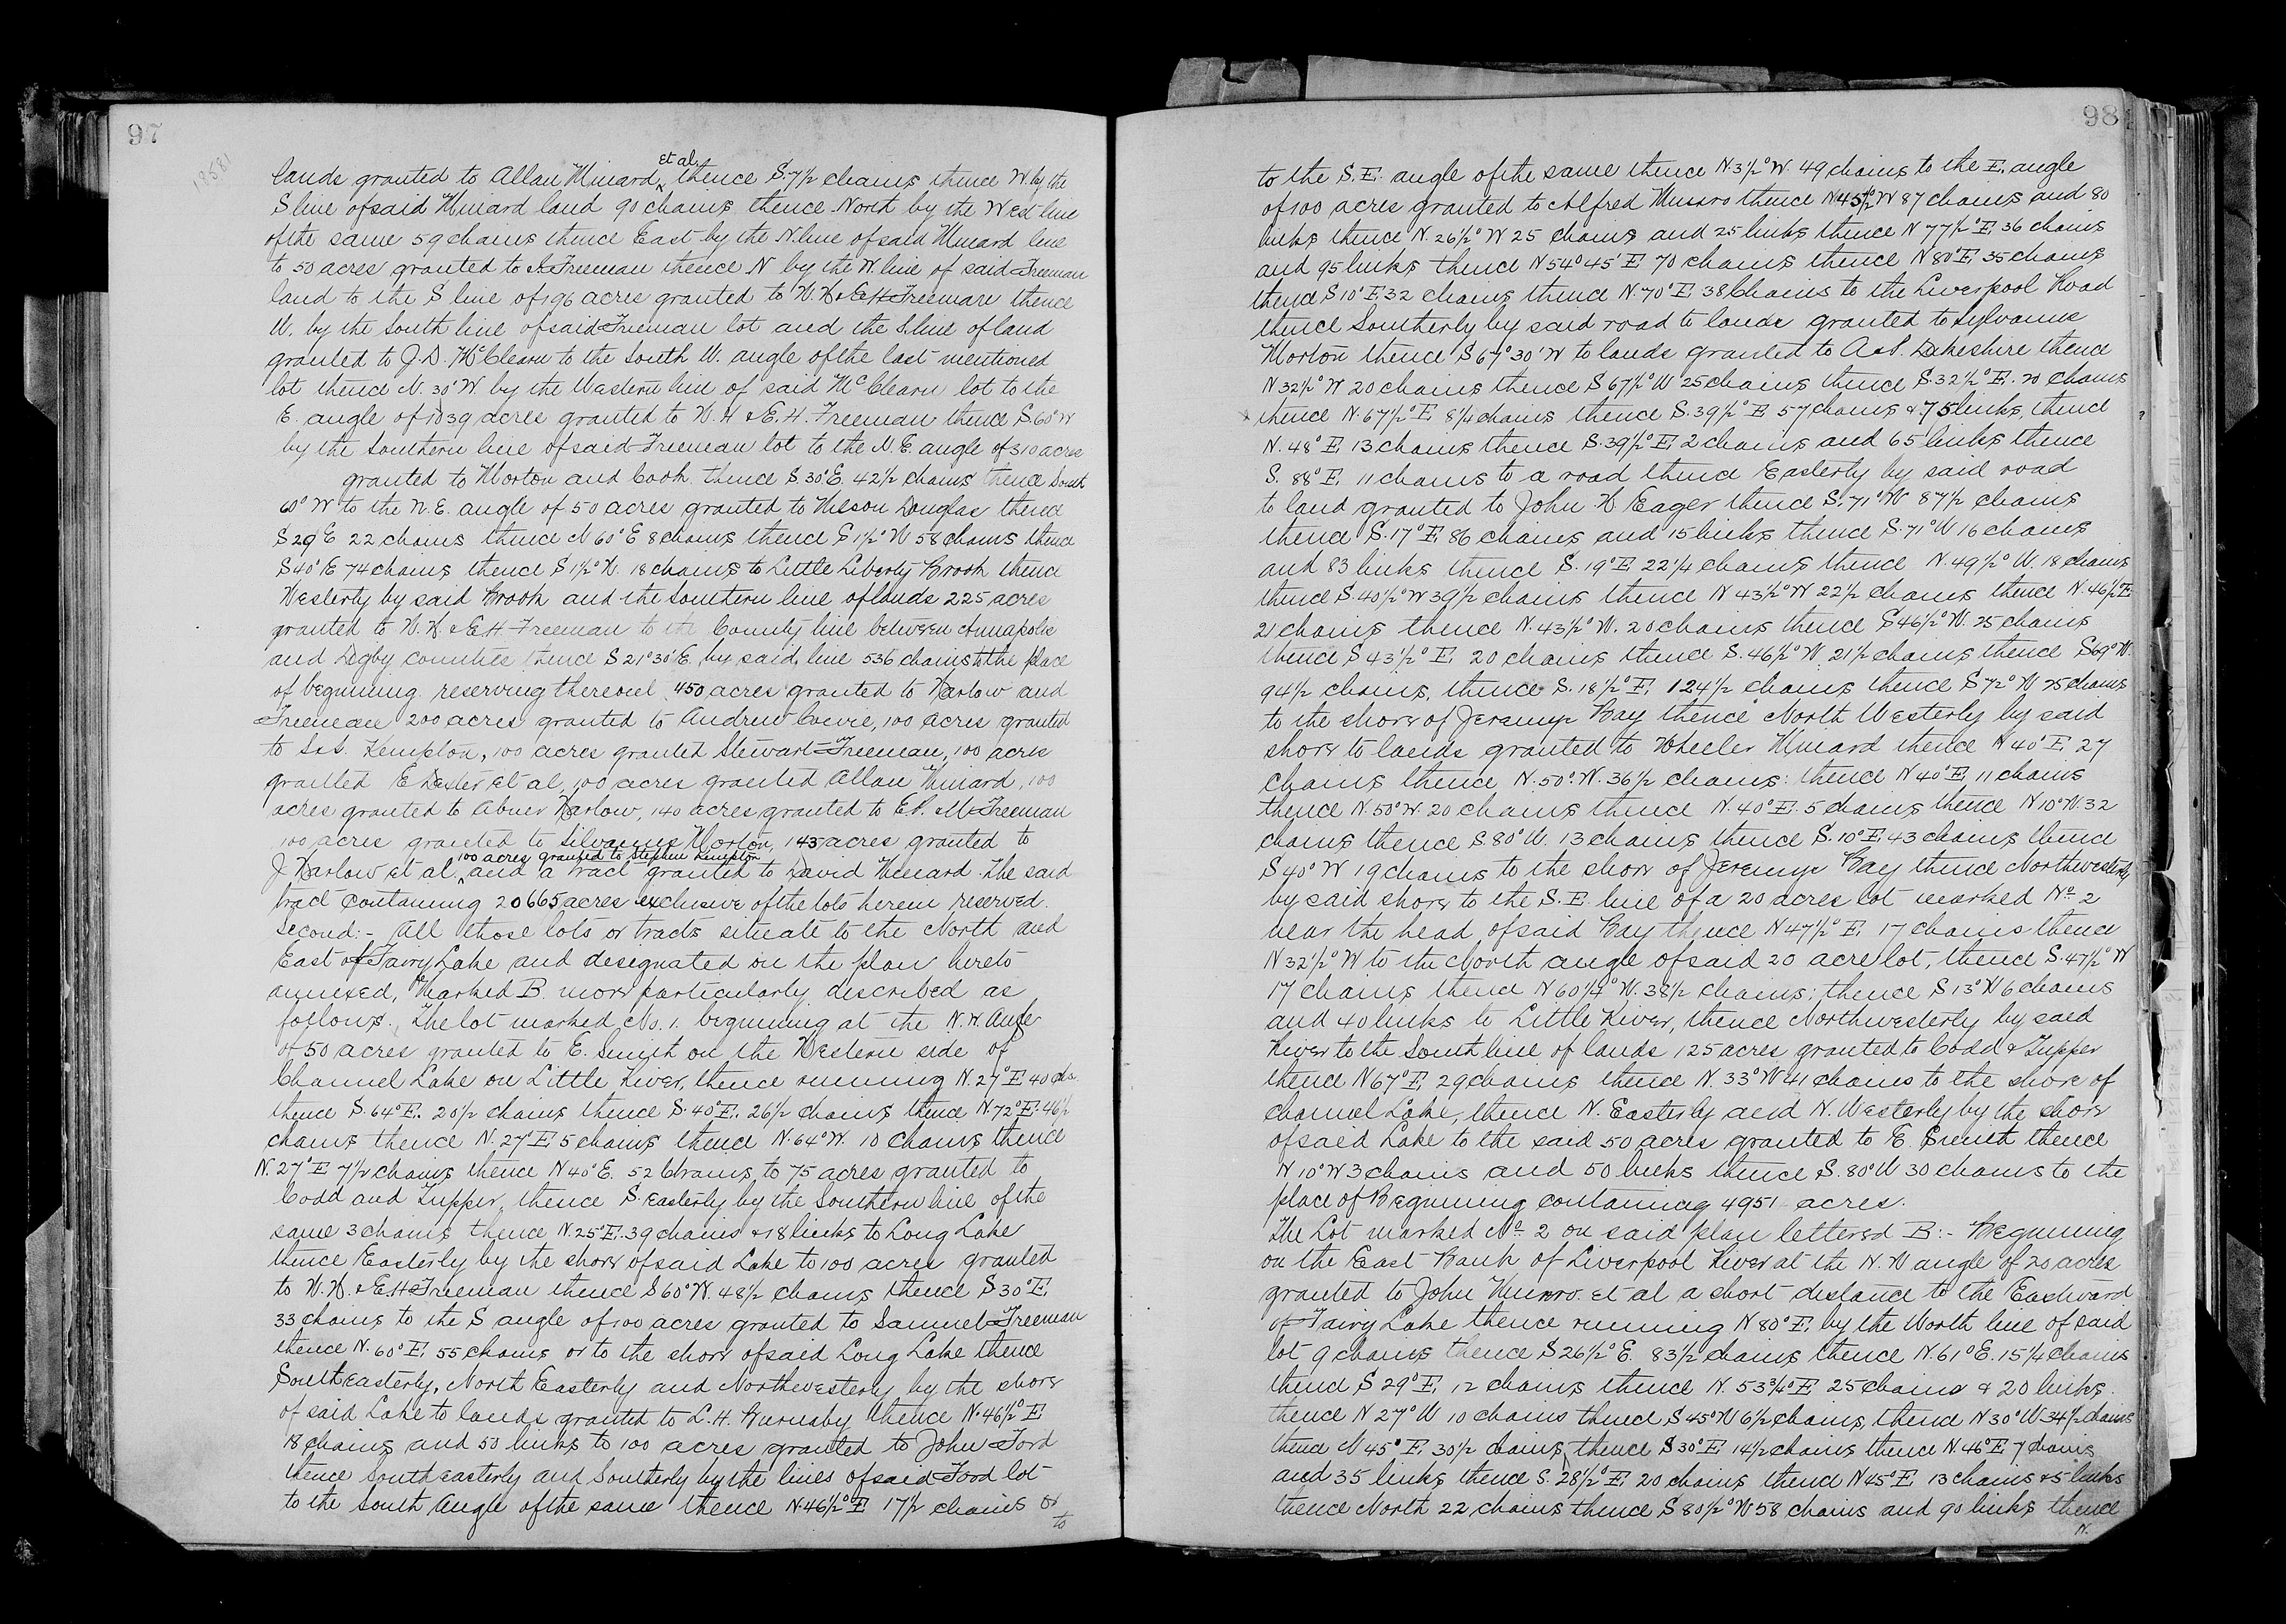 97
18581
lands granted to Allan Minard et al. thence S. 7 1/2 chains thence W. by the
S line of said Minard land 90 chains thence North by the West line
of the same 59 chains thence East by the N. line of said Minard line
to 50 acres granted to Freeman thence N by the W. line of said Freeman
land to the S line of 196 acres granted to W. H. & E H Freeman thence
W. by the South line of said Freeman lot and the S. line of land
granted to J. D. McClearn to the South W. angle of the last mentioned
lot thence N. 30° W. by the Western line of said McClearn lot to the
E. angle of 1039 acres granted to W. H & E. H. Freeman thence S. 60° W
by the Southern line of said Freeman lot to the N. E. angle of 310 acres
granted to Morton and Cook thence S. 30° E. 42 1/2 chains thence South
60° W to the N. E. angle of 50 acres granted to Nelson Douglas thence
S 29° E 22 chains thence N 60° E 8 chains thence S 1 1/2° W 58 chains thence
S 40° E 74 chains thence S 1 1/2° W. 18 chains to Little Liberty Brook thence
Westerly by said Brook and the Southern line of lands 225 acres
granted to W. H. & E H. Freeman to the County line between Annapolis
and Digby counties thence S 21° 30' E. by said line 536 chains to the place
of beginning reserving thereout 450 acres granted to Harlow and
Freeman 200 acres granted to Andrew Cowie, 100 acres granted
to S & S. Kempton, 100 acres granted Stewart Freeman, 100 acres
granted E Dexter et al, 100 acres granted Allan Minard, 100
acres granted to Abner Harlow, 140 acres granted to E P. & M Freeman
100 acres granted to Silvanus Morton, 143 acres granted to
100 acres granted to Stephen Kempton
J Harlow et al, and a tract granted to David Minard. The said
tract containing 20665 acres exclusive of the lots herein reserved.
Second:- All those lots or tracts situate to the North and
East of Fairy Lake and designated on the plan hereto
annexed, Marked B. more particularly described as
follows. The lot marked No. 1. beginning at the N. W. Angle
of 50 acres granted to E. Smith on the Western side of
Channel Lake on Little River, thence running N. 27° E 40 chs
thence S. 64° E. 20 1/2 chains thence S. 40° E. 26 1/2 chains thence N. 72° E. 46 1/2
chains thence N. 27° E 5 chains thence N. 64° W. 10 chains thence
N. 27° E 7 1/2 chains thence N 40° E. 52 Chains to 75 acres granted to
Codd and Tupper, thence S. Easterly by the Southern line of the
same 3 chains thence N. 25° E. 39 chains & 18 links to Long Lake
thence Easterly by the shore of said Lake to 100 acres granted
to W. H. & E H Freeman thence S 60° W. 48 1/2 chains thence S 30° E.
33 chains to the S angle of 100 acres granted to Samuel Freeman
thence N. 60° E. 55 chains or to the shore of said Long Lake thence
South Easterly, North Easterly and Northwesterly by the shore
of said Lake to lands granted to L. H. Burnaby thence N. 46 1/2° E
18 chains and 50 links to 100 acres granted to John Ford
thence South easterly and Southerly by the lines of said Ford lot
to the South Angle of the same thence N. 46 1/2° E 17 1/2 chains or
to
98
to the S. E. angle of the same thence N. 3 1/2° W. 49 chains to the E. angle
of 100 acres granted to Alfred Munro thence N 45 1/2° W 87 chains and 80
links thence N. 26 1/2° W 25 chains and 25 links thence N 77 1/2° E 36 chains
and 95 links thence N 54° 45' E 70 chains thence N 80° E 35 chains
thence S 10° E 32 chains thence N. 70° E 38 Chains to the Liverpool Road
thence Southerly by said road to lands granted to Sylvanus
Morton thence S 67° 30' W to lands granted to A & P. Dukeshire thence
N 32 1/2° W 20 chains thence S 67 1/2° W 25 chains thence S. 32 1/2° E. 20 chains
x thence N. 67 1/2° E. 8 1/4 chains thence S. 39 1/2° E 57 chains & 75 links, thence
N. 48° E. 13 chains thence S. 39 1/2° E. 2 chains and 65 links thence
S. 88° E. 11 chains to a road thence Easterly by said road
to land granted to John H Eager thence S. 71° W 87 1/2 chains
thence S. 17° E. 86 chains and 15 links thence S. 71° W 16 chains
and 83 links thence S. 19° E 22 1/4 chains thence N. 49 1/2° W. 18 chains
thence S. 40 1/2° W 39 1/2 chains thence N 43 1/2° W 22 1/2 chains thence N. 46 1/2° E
21 chains thence N. 43 1/2° W. 20 chains thence S 46 1/2° W. 25 chains
thence S 43 1/2° E. 20 chains thence S. 46 1/2° W. 21 1/2 chains thence S 69° W.
94 1/2 chains, thence S. 18 1/2° E. 124 1/2 chains thence S 72° W 25 chains
to the shore of Jeremys Bay thence North Westerly by said
shore to lands granted to Wheeler Minard thence N 40° E. 27
chains thence N. 50° W. 36 1/2 chains: thence N 40° E, 11 chains
thence N. 50° W. 20 chains thence N. 40° E. 5 chains thence N 10° W 32
chains thence S. 80° W. 13 chains thence S. 10° E 43 chains thence
S 40° W 19 chains to the shore of Jeremys Bay thence Northwesterly
by said shore to the S. E. line of a 20 acres lot marked No. 2
near the head of said Bay thence N 47 1/2° E. 17 chains thence
N 32 1/2° W to the North angle of said 20 acre lot, thence S. 47 1/2° W
17 chains thence N 60 1/4° W. 38 1/2 chains; thence S 13° W 6 chains
and 40 links to Little River, thence Northwesterly by said
River to the South line of lands 125 acres granted to Codd & Tupper
thence N 67° E. 29 chains thence N. 33° W 41 chains to the shore of
Channel Lake, thence N. Easterly and N. Westerly by the shore
of said Lake to the said 50 acres granted to E. Smith thence
N 10° W 3 chains and 50 links thence S. 80° W 30 chains to the
place of Beginning containing 4951 acres.
The Lot marked No. 2 on said plan lettered B:- Beginning
on the East Bank of Liverpool River at the N. W angle of 20 acres
granted to John Munro et al a short distance to the Eastward
of Fairy Lake thence running N 80° E. by the North line of said
lot 9 chains thence S 26 1/2° E. 83 1/2 chains thence N. 61° E. 15 1/4 chains
thence S 29° E. 12 chains thence N. 53 3/4° E 25 chains & 20 links.
thence N 27° W 10 chains thence S 45° W 6 1/2 chains, thence N 30° W 34 1/2 chains
thence N 45° E. 30 1/2 chains, thence S 30° E 14 1/2 chains thence N. 46° E 7 chains
and 35 links thence S. 28 1/2° E 20 chains thence N 45° E. 13 chains & 5 links
thence North 22 chains thence S 80 1/2° W 58 chains and 90 links thence
N.